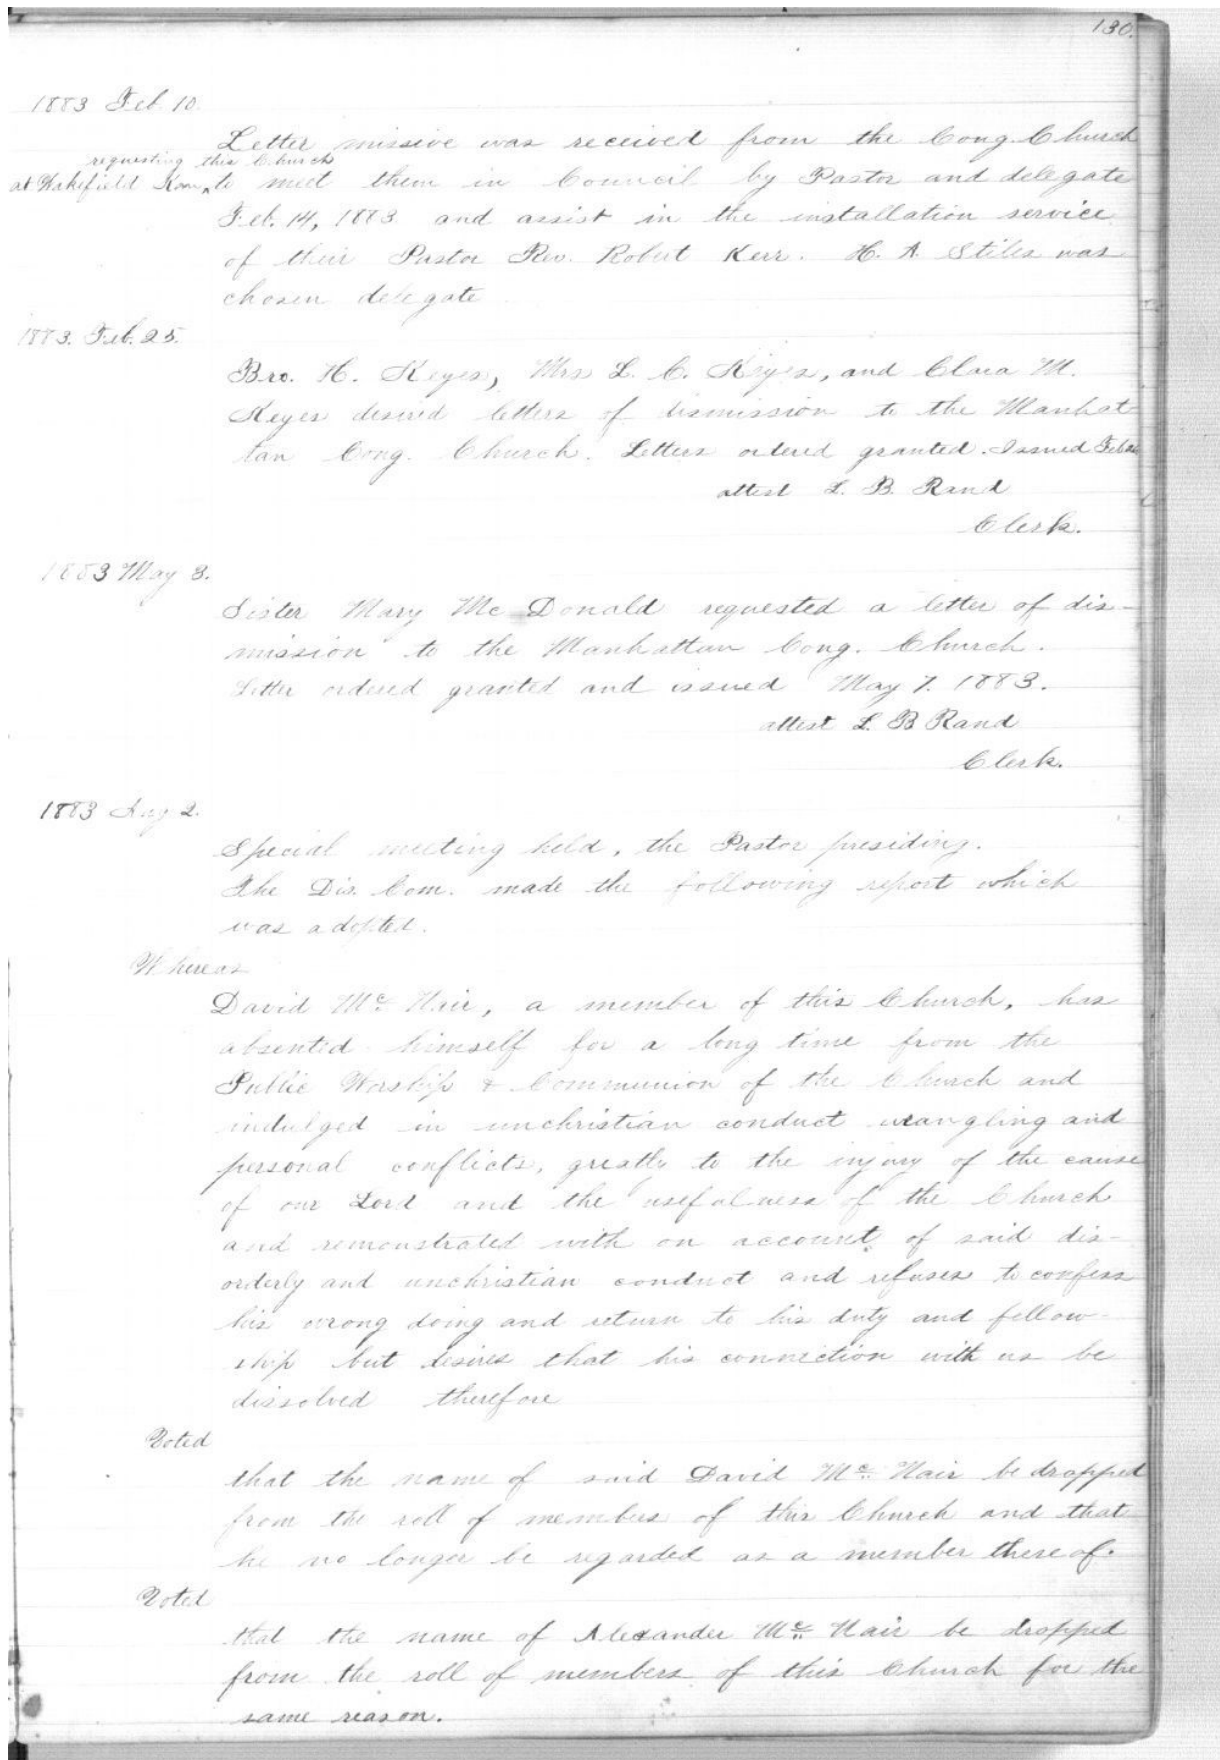 130.
1883 Feb. 10.
Letter missive was received from the Cong. Church
requesting this Church
at Wakefield Kan. to meet them in Council by Pastor and delegate
Feb. 14, 1883 and assist in the installation service
of their Pastor Rev. Robert Kerr. H. A. Stiles was
chosen delegate
1883. Feb. 25.
Bro. H. Keyes, Mrs L. C. Keyes, and Clara M.
Keyes desired letters of dismission to the Manhat-
tan Cong. Church. Letters ordered granted. Issued Feb
attest L. B. Rand
Clerk.
1883 May 3.
Sister Mary Mc Donald requested a letter of dis-
mission to the Manhattan Cong. Church.
Letter ordered granted and issued May 7. 1883.
attest L. B Rand
Clerk.
1883 Aug 2.
Special meeting held, the Pastor presiding.
The Dis. Com. made the following report which
was adopted.
Whereas
David Mc Nair, a member of this Church, has
absented himself for a long time from the
Public Worship & Communion of the Church and
indulged in unchristian conduct wrangling and
personal conflicts, greatly to the injury of the cause
of our Lord and the usefulness of the Church
and remonstrated with on account of said dis-
orderly and unchristian conduct and refuses to confess
his wrong doing and return to his duty and fellow-
ship but desires that his connection with us be
dissolved therefore
Voted
that the name of said David Mc Nair be dropped
from the roll of members of this Church and that
he no longer be regarded as a member thereof.
Voted
that the name of Alexander Mc Nair be dropped
from the roll of members of this Church for the
same reason.